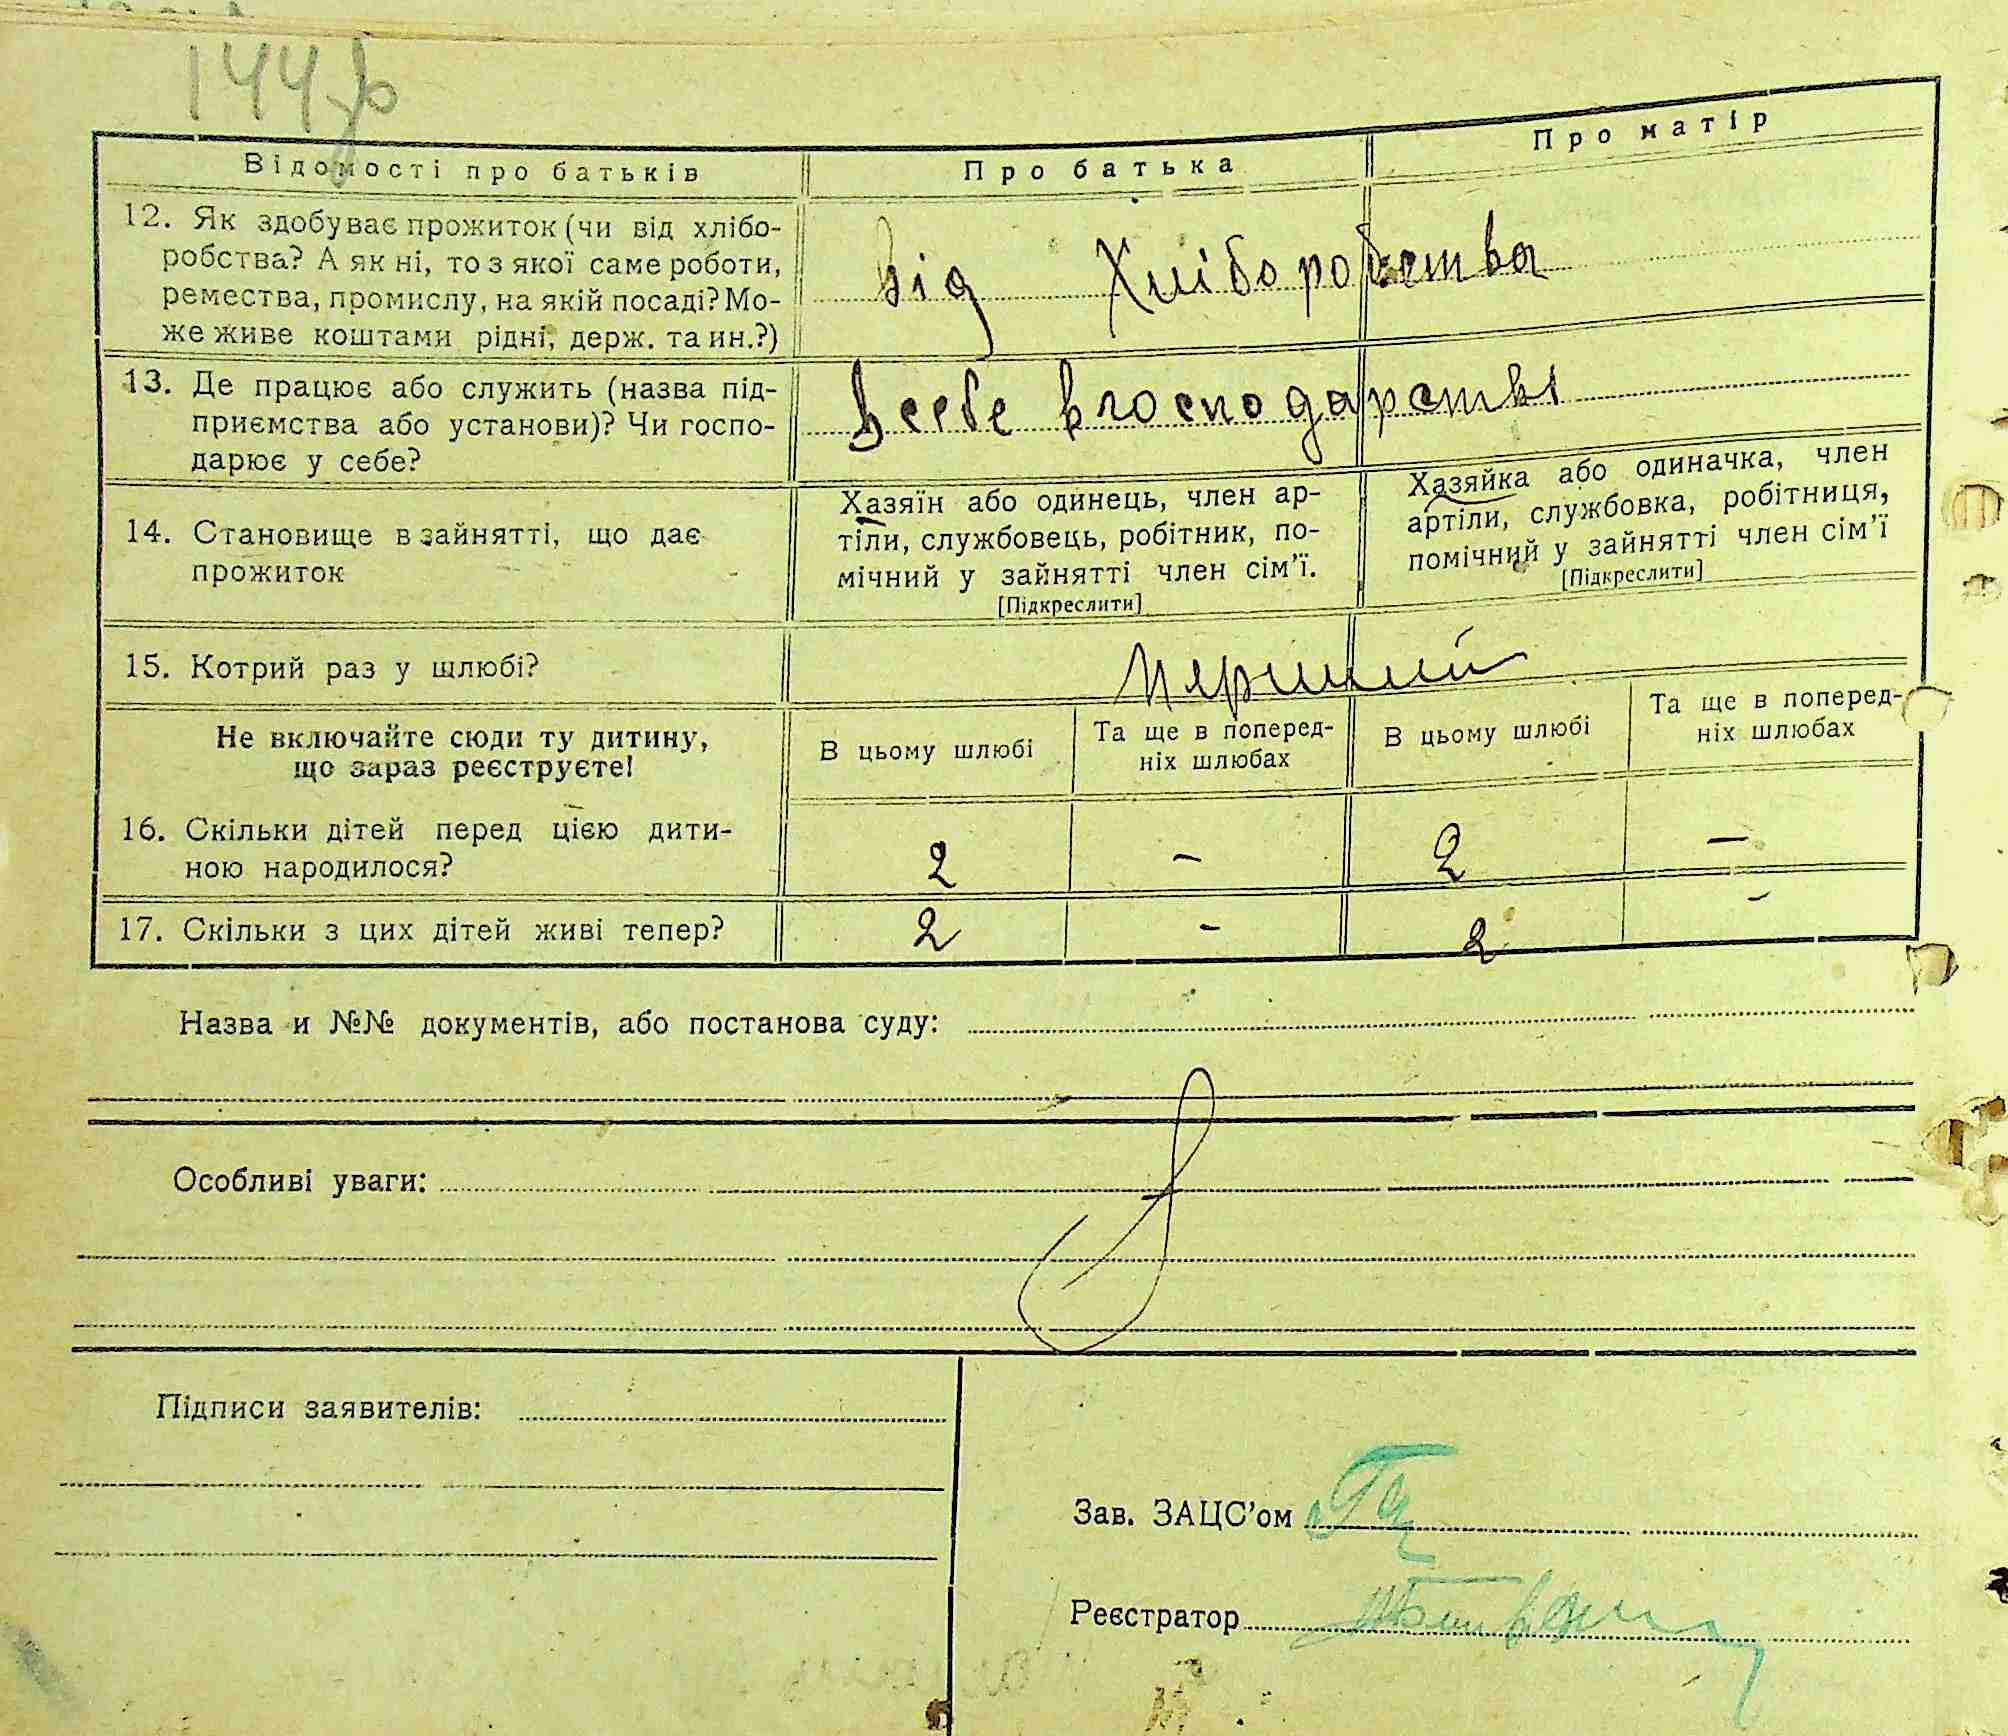 144
Відомості про батьків Про батька Про матір
12. Як здобуває прожиток (чи від хлібо-
робства? А як ні, то з якої саме роботи,
ремества, промислу, на якій посаді? Мо-
же живе коштами рідні, держ. та ин.?)
Від Хліборобства
13. Де працює або служить (назва під-
приємства або установи)? Чи госпо-
дарює у себе?
в себе в господарстві
14. Становище в зайнятті, що дає
прожиток
Хазяїн або одинець, член ар-
тіли, службовець, робітник, по-
мічний у зайнятті член сім’ї.
[Підкреслити]
Хазяйка або одиначка, член
артіли, службовка, робітниця,
помічний у зайнятті член сім’ї
[Підкреслити]
15. Котрий раз у шлюбі?
Перший
Не включайте сюди ту дитину,
що зараз реєструєте!
В цьому шлюбі
Та ще в поперед-
ніх шлюбах
В цьому шлюбі
Та ще в поперед-
ніх шлюбах
16. Скільки дітей перед цією дити-
ною народилося?
2 - 2 -
17. Скільки з цих дітей живі тепер?
2 - 2 -
Назва и №№ документів, або постанова суду:
Особливі уваги:
Підписи заявителів:
Зав. ЗАЦС’ом
Реєстратор